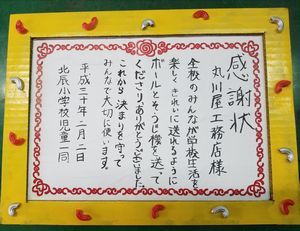 感謝状
丸川屋工務店様
全校のみんなが学校生活を
楽しくきれいに送れるように
ボールとそうじ機を送って
くださりありがとうございました。
これから決まりを守って
みんなで大切に使います。
平成三十年二月二日
北辰小学校児童一同